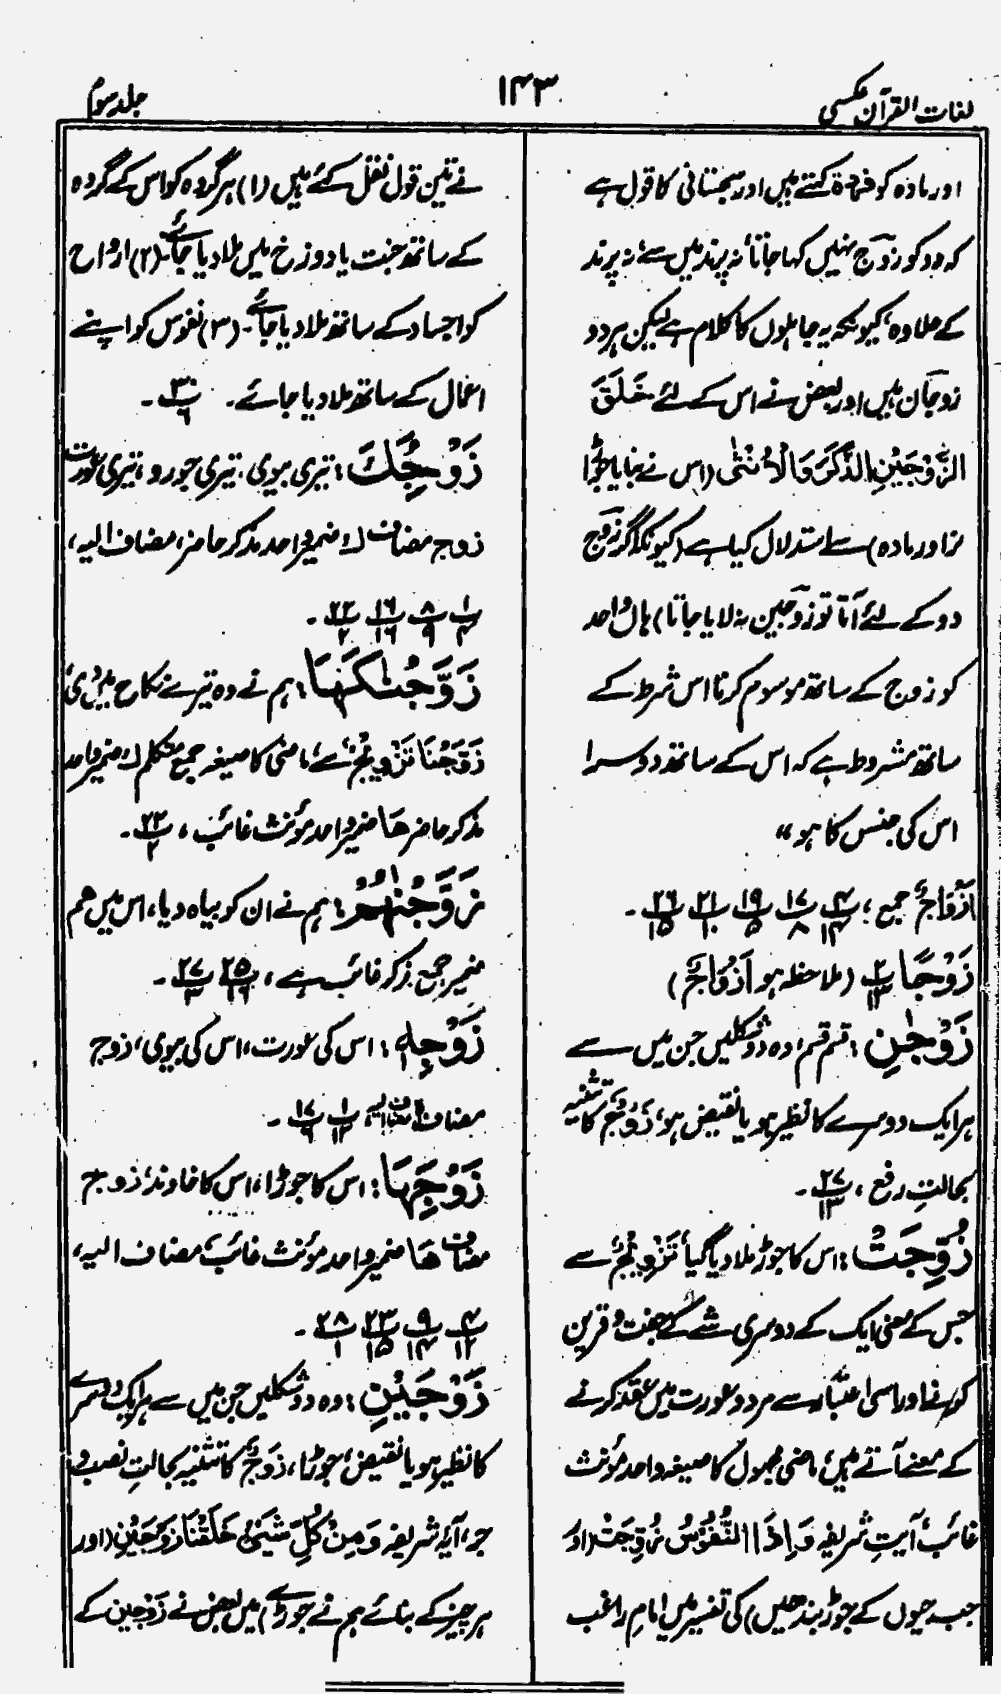 لغات القرآن عکسی
۱۴۳
جلد سوم
اور مادہ کو فردۃ کہتے ہیں اور سجستانی کا قول ہے
کہ دو کو زوج نہیں کہا جاتا، نہ پرند میں سے، نہ پرند
کے علاوہ، کیونکہ یہ جاہلوں کا کلام ہے لیکن ہر دو
زوجان ہیں اور بعض نے اس کے لئے خَلَقَ
الزَّوْجَیْنِ الذَّکَرَ وَالْاُنْثٰی (اس نے بنایا جوڑا
نر اور مادہ) سے استدلال کیا ہے (کیونکہ اگر زوج
دو کے لئے آتا تو زوجین نہ لایا جاتا) ہاں واحد
کو زوج کے ساتھ موسوم کرنا اس شرط کے
ساتھ مشروط ہے کہ اس کے ساتھ دوسرا
اس کی جنس کا ہو“
اَزْوَاجٌ جمع؛ ۴/۱۴ ۱۷/۸ ۱۹/۵ ۲۱/۱۰ ۲۶/۱۵ ۔
زَوْجًا ۲/۱۳ (ملاحظہ ہو اَزْوَاجٌ)
زَوْجٰنِ: قسم قسم، وہ دو شکلیں جن میں سے
ہر ایک دوسرے کا نظیر ہو یا نقیض ہو، زَوْجٌ کا تثنیہ
بحالتِ رفع، ۲۷/۱۳ ۔
زُوِّجَتْ: اس کا جوڑ ملا دیا گیا، تَزْوِیْجٌ سے
جس کے معنی ایک کے دوسری شے کے جفت و قرین
کرنے اور اسی اعتبار سے مرد و عورت میں عقد کرنے
کے معنے آتے ہیں، ماضی مجہول کا صیغہ واحد مؤنث
غائب، آیتِ شریفہ وَاِذَا النُّفُوْسُ زُوِّجَتْ (اور
جب جیوں کے جوڑ بندھیں) کی تفسیر میں امام راغب
نے تین قول نقل کئے ہیں (۱) ہر گروہ کو اس کے گروہ
کے ساتھ جنت یا دوزخ میں ملا دیا جائے۔ (۲) ارواح
کو اجساد کے ساتھ ملا دیا جائے۔ (۳) نفوس کو اپنے
اعمال کے ساتھ ملا دیا جائے۔ ۳۰/۶ ۔
زَوْجُكَ: تیری بیوی، تیری جورو، تیری عورت
زوج مضاف ك ضمیر واحد مذکر حاضر، مضاف الیہ،
۱/۴ ۸/۹ ۱۶/۱۶ ۲۲/۲ ۔
زَوَّجْنٰکَهَا: ہم نے وہ تیرے نکاح میں دی
زَوَّجْنَا تَزْوِیْجٌ سے، ماضی کا صیغہ جمع متکلم ك ضمیر واحد
مذکر حاضر هَا ضمیر واحد مؤنث غائب، ۲۲/۲ ۔
زَوَّجْنٰهُمْ: ہم نے ان کو بیاہ دیا، اس میں هم
ضمیر جمع مذکر غائب ہے، ۲۵/۱۶ ۲۷/۳ ۔
زَوْجِهٖ: اس کی عورت، اس کی بیوی، زوج
مضاف ہ مضاف الیہ، ۱/۱۲ ۱۷/۹ ۔
زَوْجَهَا: اس کا جوڑا، اس کا خاوند، زوج
مضاف هَا ضمیر واحد مؤنث غائب، مضاف الیہ،
۴/۱۲ ۹/۱۴ ۲۳/۱۵ ۲۸/۱ ۔
زَوْجَیْنِ: وہ دو شکلیں جن میں سے ہر ایک دوسرے
کا نظیر ہو یا نقیض، جوڑا، زَوْجٌ کا تثنیہ بحالتِ نصب و
جر، آیۂ شریفہ وَمِنْ کُلِّ شَیْءٍ خَلَقْنَا زَوْجَیْنِ (اور
ہر چیز کے بنائے ہم نے جوڑے) میں بعض نے زَوْجَیْن کے